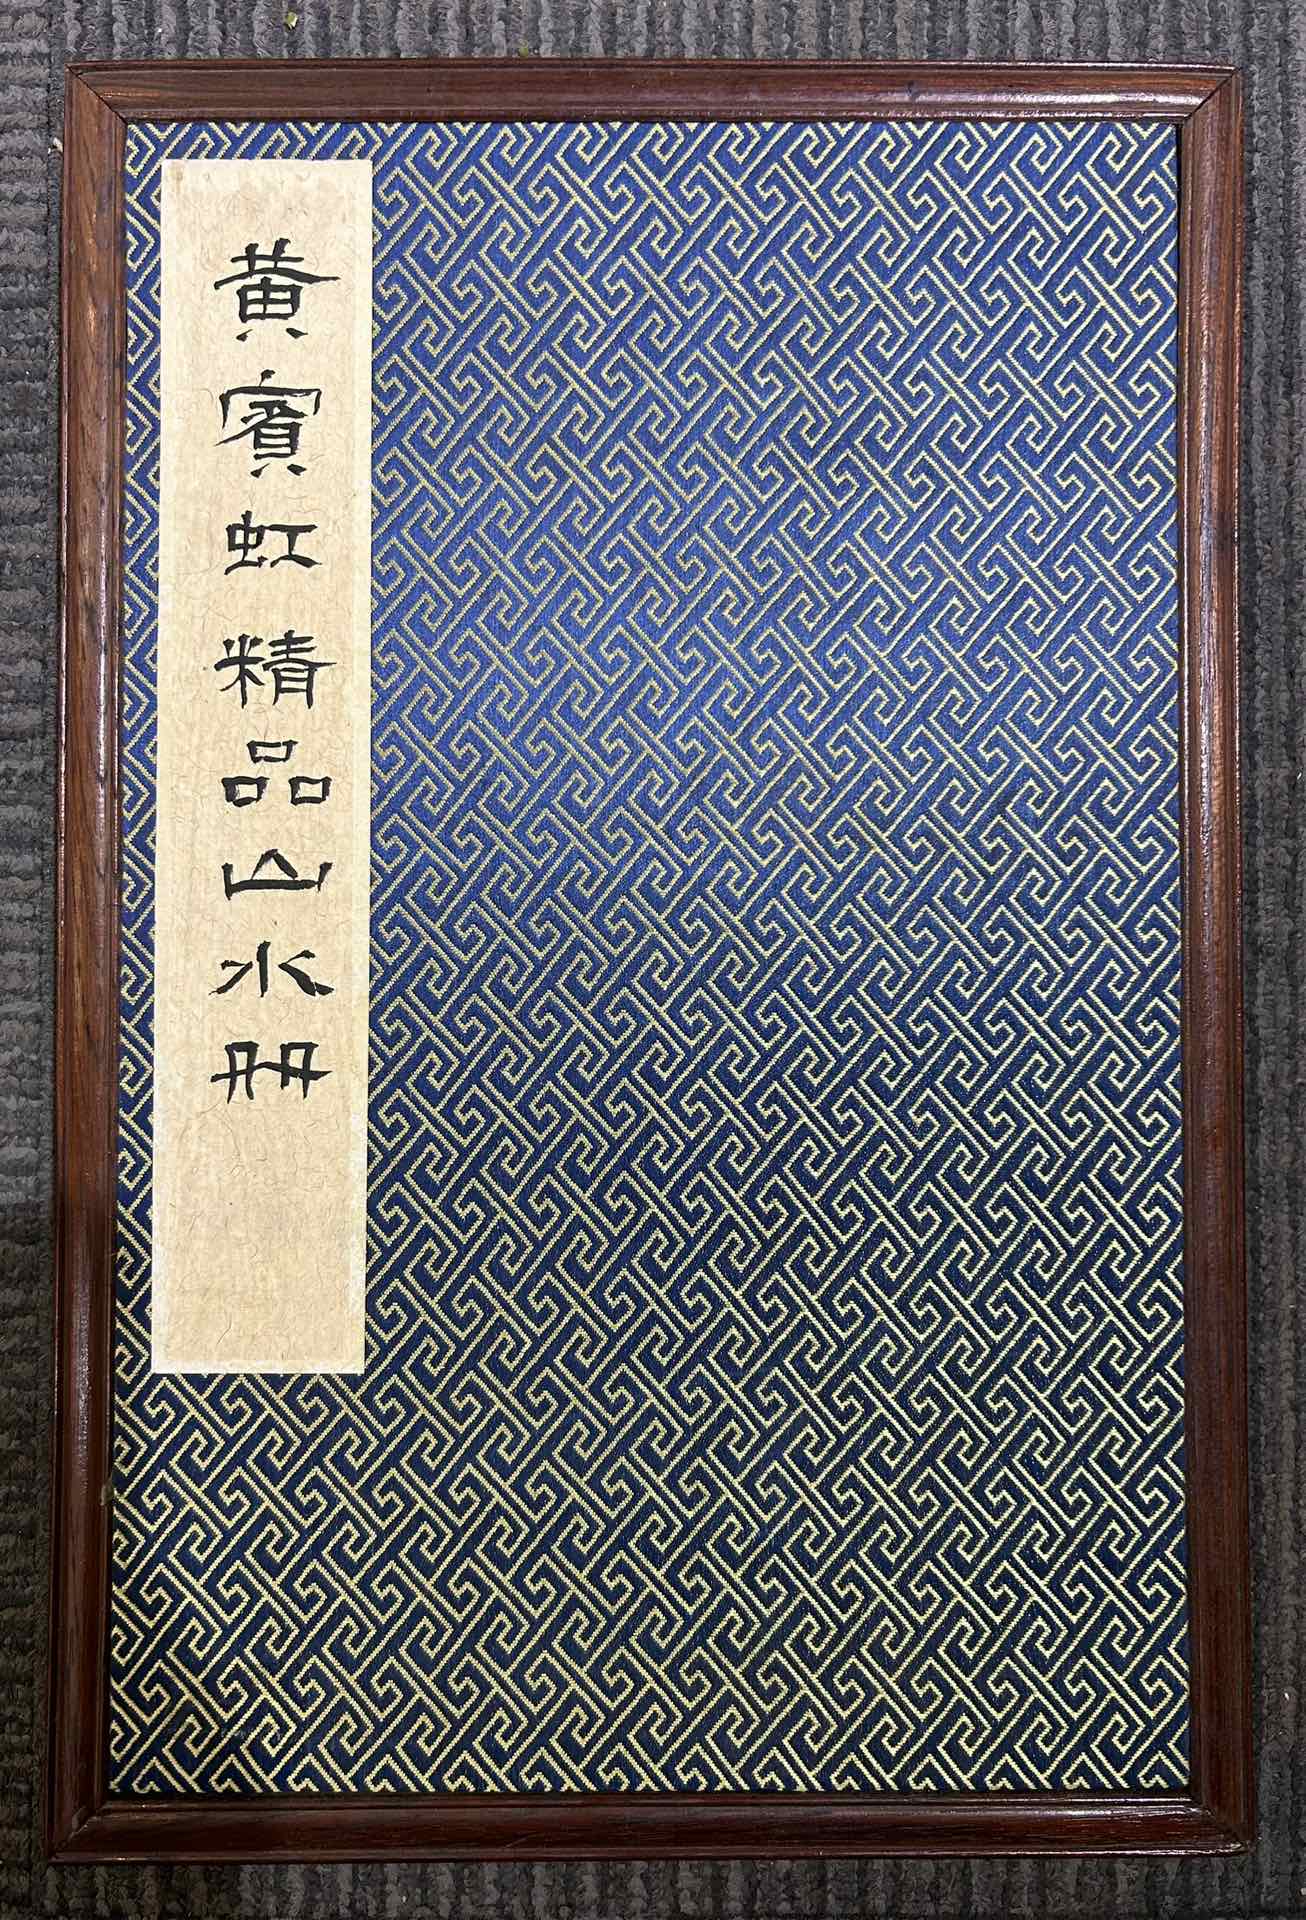 黄賓虹精品山水册